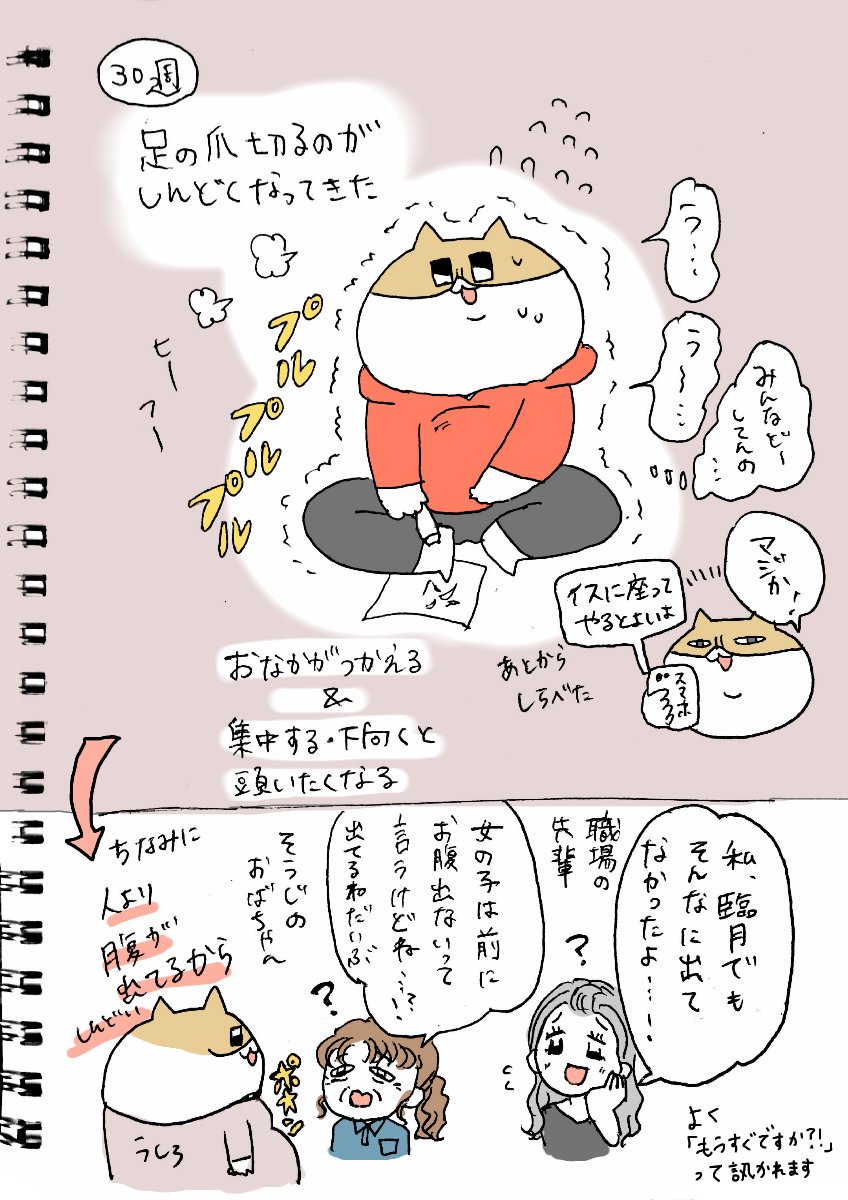 30週
足の爪切るのが
しんどくなってきた
う…
う〜…
みんなどー
してんの
…
ヒー
フー
プル
プル
プル
マジか!
イスに座って
やるとよいよ
スマホ
あとから
しらべた
おなかがつかえる
&
集中する・下向くと
頭いたくなる
私、臨月でも
そんなに出て
なかったよ…!
職場の
先輩
?
女の子は前に
お腹出ないって
言うけどね…!?
出てるねだいぶ
そうじの
おばちゃん
?
ちなみに
人より
腹が
出てるから
しんどい
ポキン
うしろ
よく
「もうすぐですか?!」
って訊かれます